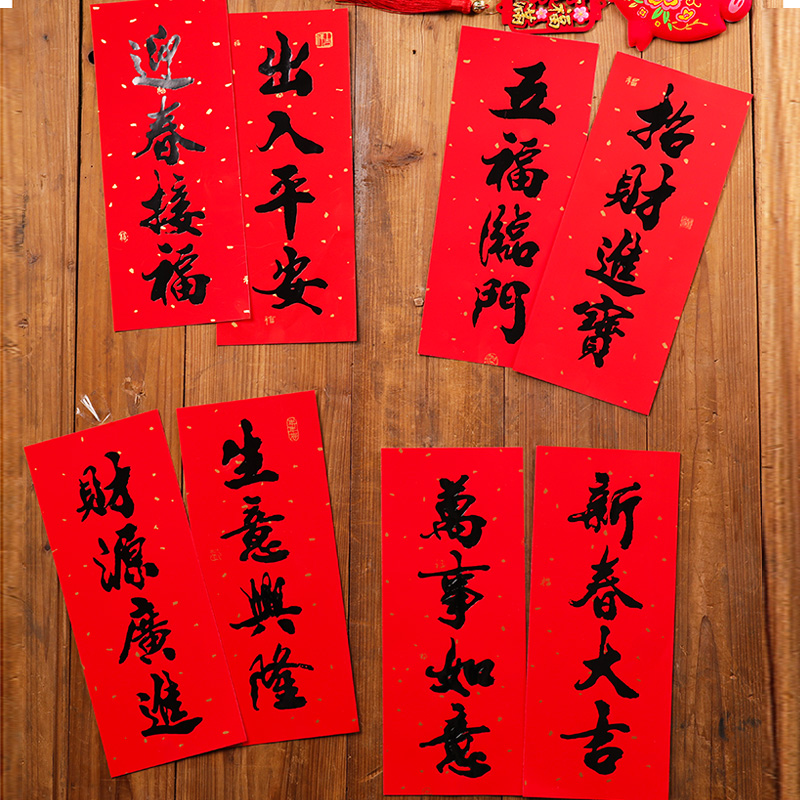 迎春接福
出入平安
五福臨門
招財進寶
財源廣進
生意興隆
萬事如意
新春大吉